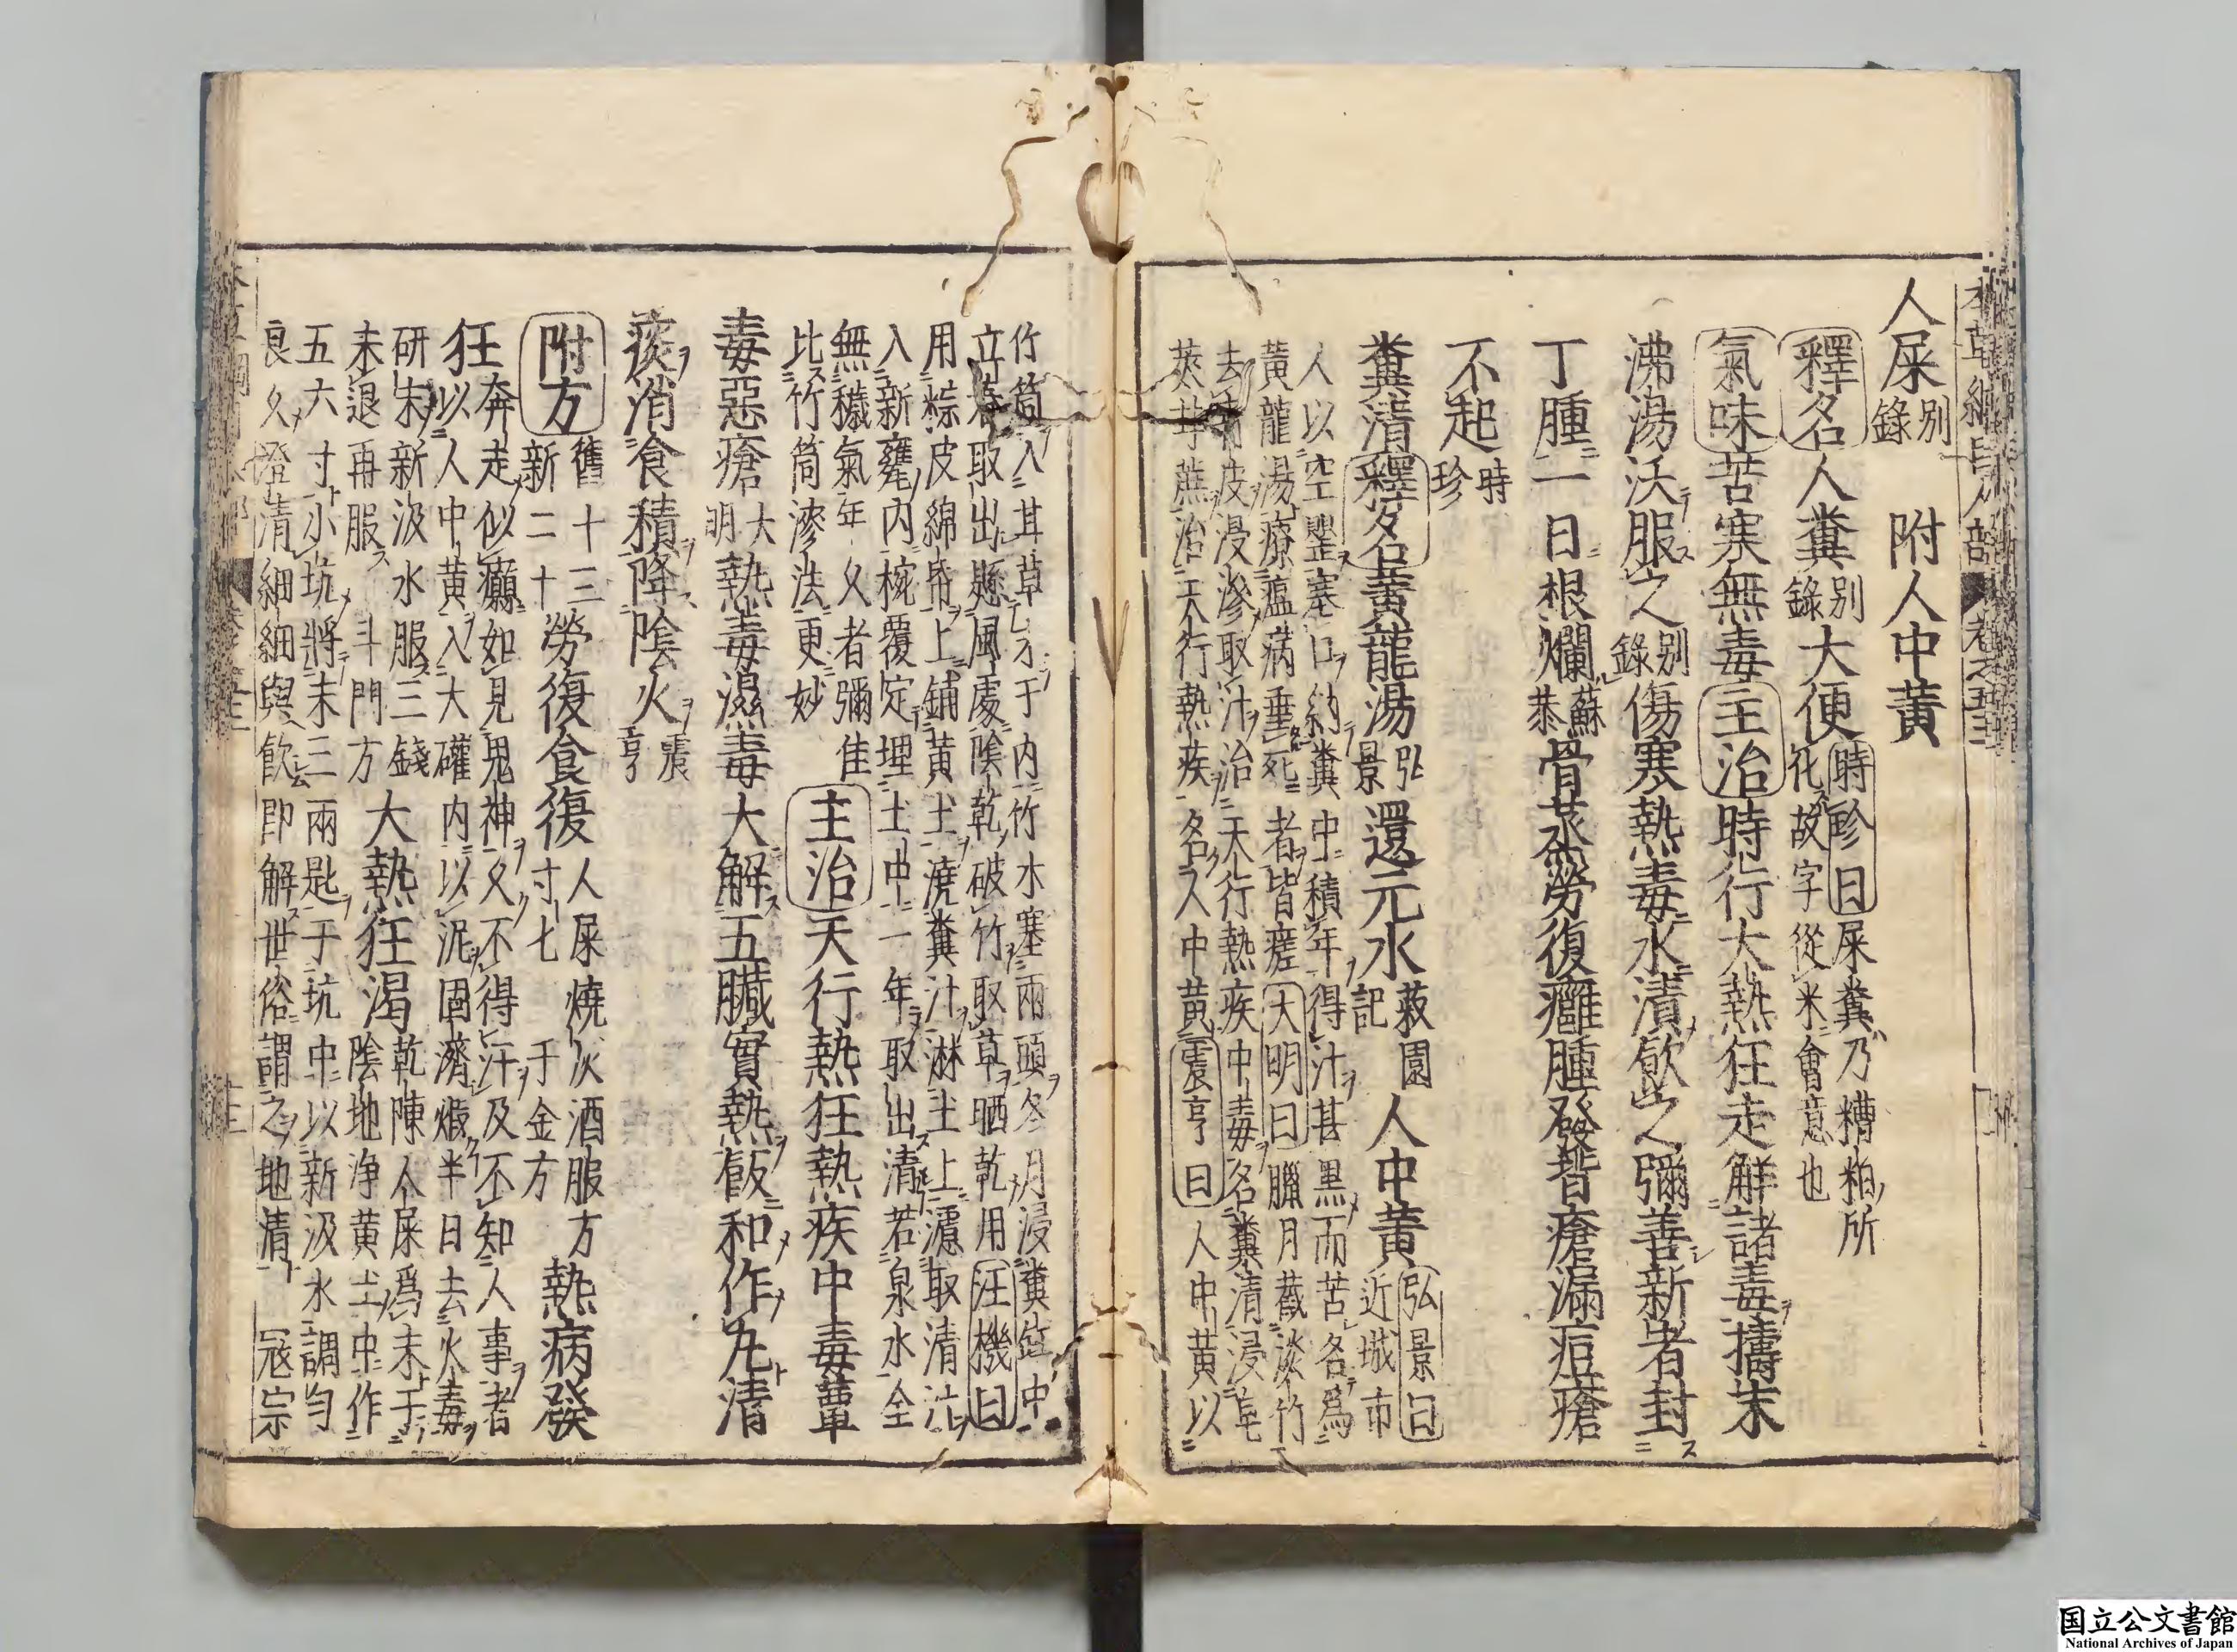 人屎別錄 附人中黃
釋名人糞別錄大便時珍曰屎糞乃糟粕所
化故字從米會意也
氣味苦寒無毒主治時行大熱狂走解諸毒擣末
沸湯沃服之別錄傷寒熱毒水漬飲之彌善新者封
丁腫一日根爛蘇恭骨蒸勞復癰腫發背瘡漏痘瘡
不起時珍
糞清釋名黃龍湯弘景還元水菽園記人中黃弘景曰近城市
人以空罌塞口納糞中積年得汁甚黑而苦名爲
黃龍湯療瘟病垂死者皆瘥大明曰臘月截淡竹
去青皮浸滲取汁治天行熱疾中毒名糞清浸皂
莢甘蔗治天行熱疾名人中黃震亨曰人中黃以
竹筒入甘草末于内竹木塞兩頭冬月浸糞缸中
立春取出懸風處陰乾破竹取草晒乾用汪機曰
用棕皮綿帋上鋪黃土澆糞汁淋土上濾取清汁
入新甕内椀覆定埋土中一年取出清若泉水全
無穢氣年久者彌佳
比竹筒滲法更妙主治天行熱狂熱疾中毒蕈
毒惡瘡大明熱毒濕毒大解五臟實熱飯和作丸清
痰消食積降陰火震亨
附方舊十三新二十勞復食復人屎燒灰酒服方寸匕 千金方熱病發
狂奔走似癲如見鬼神久不得汗及不知人事者
以人中黃入大罐内以泥固濟煅半日去火毒
研末新汲水服三錢
未退再服 斗門方大熱狂渴乾陳人屎爲末于
陰地淨黃土中作
五六寸小坑將末三兩匙于坑中以新汲水調勻
良久澄清細細與飲即解世俗謂之地清 寇宗
国立公文書館
National Archives of Japan